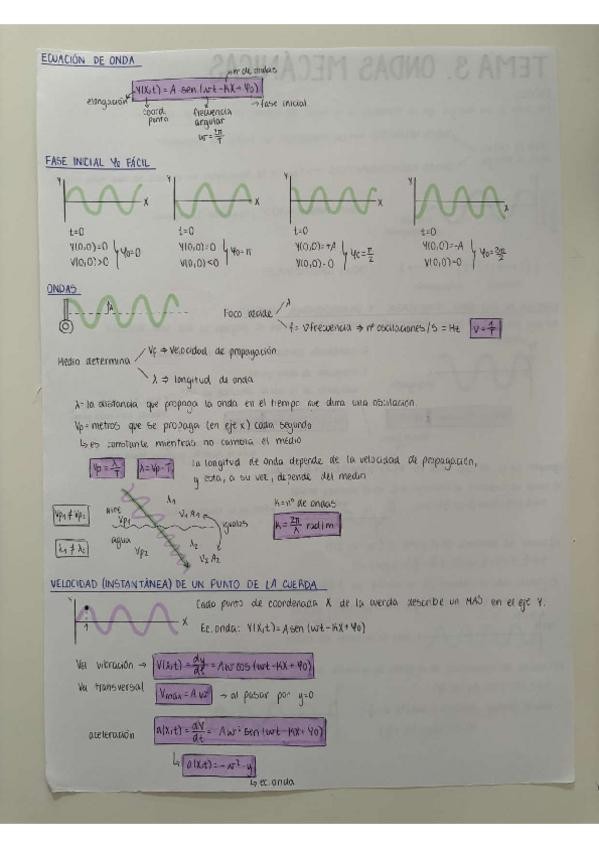 ECUACIÓN DE ONDA
nº de ondas
Y(x,t) = A · sen (ωt - Kx + φ0)
elongación
coord. punto
frecuencia angular
fase inicial
ω = 2π/T
FASE INICIAL φ0 FÁCIL
Y X Y X Y X Y X
t=0 t=0 t=0 t=0
Y(0,0)=0 Y(0,0)=0 Y(0,0)=+A Y(0,0)=-A
V(0,0)>0 V(0,0)<0 V(0,0)=0 V(0,0)=0
φ0=0 φ0=π φ0=π/2 φ0=3π/2
ONDAS
λ
Foco decide
A
f = ν frecuencia ⇒ nº oscilaciones/s = Hz
ν = 1/T
Medio determina
Vp ⇒ velocidad de propagación
λ ⇒ longitud de onda
λ= la distancia que propaga la onda en el tiempo que dura una oscilación.
Vp= metros que se propaga (en eje x) cada segundo
↳ es constante mientras no cambia el medio
Vp = λ/T
λ = Vp · T
la longitud de onda depende de la velocidad de propagación,
y esta, a su vez, depende del medio
Vp1 ≠ Vp2
λ1 ≠ λ2
aire
Vp1
λ1
V1 A1
agua
Vp2
λ2
V2 A2
iguales
K=nº de ondas
K = 2π/λ rad/m
VELOCIDAD (INSTANTÁNEA) DE UN PUNTO DE LA CUERDA
Y
1
X
Cada punto de coordenada X de la cuerda describe un MAS en el eje Y.
Ec. onda: Y(x,t) = A sen (ωt - Kx + φ0)
Va vibración → V(x,t) = dy/dt = Aω cos (ωt - Kx + φ0)
Va transversal
Vmáx = A ω → al pasar por y=0
aceleración
a(x,t) = dV/dt = - Aω² sen (ωt - Kx + φ0)
↳ a(x,t) = -ω² · y
↳ ec. onda